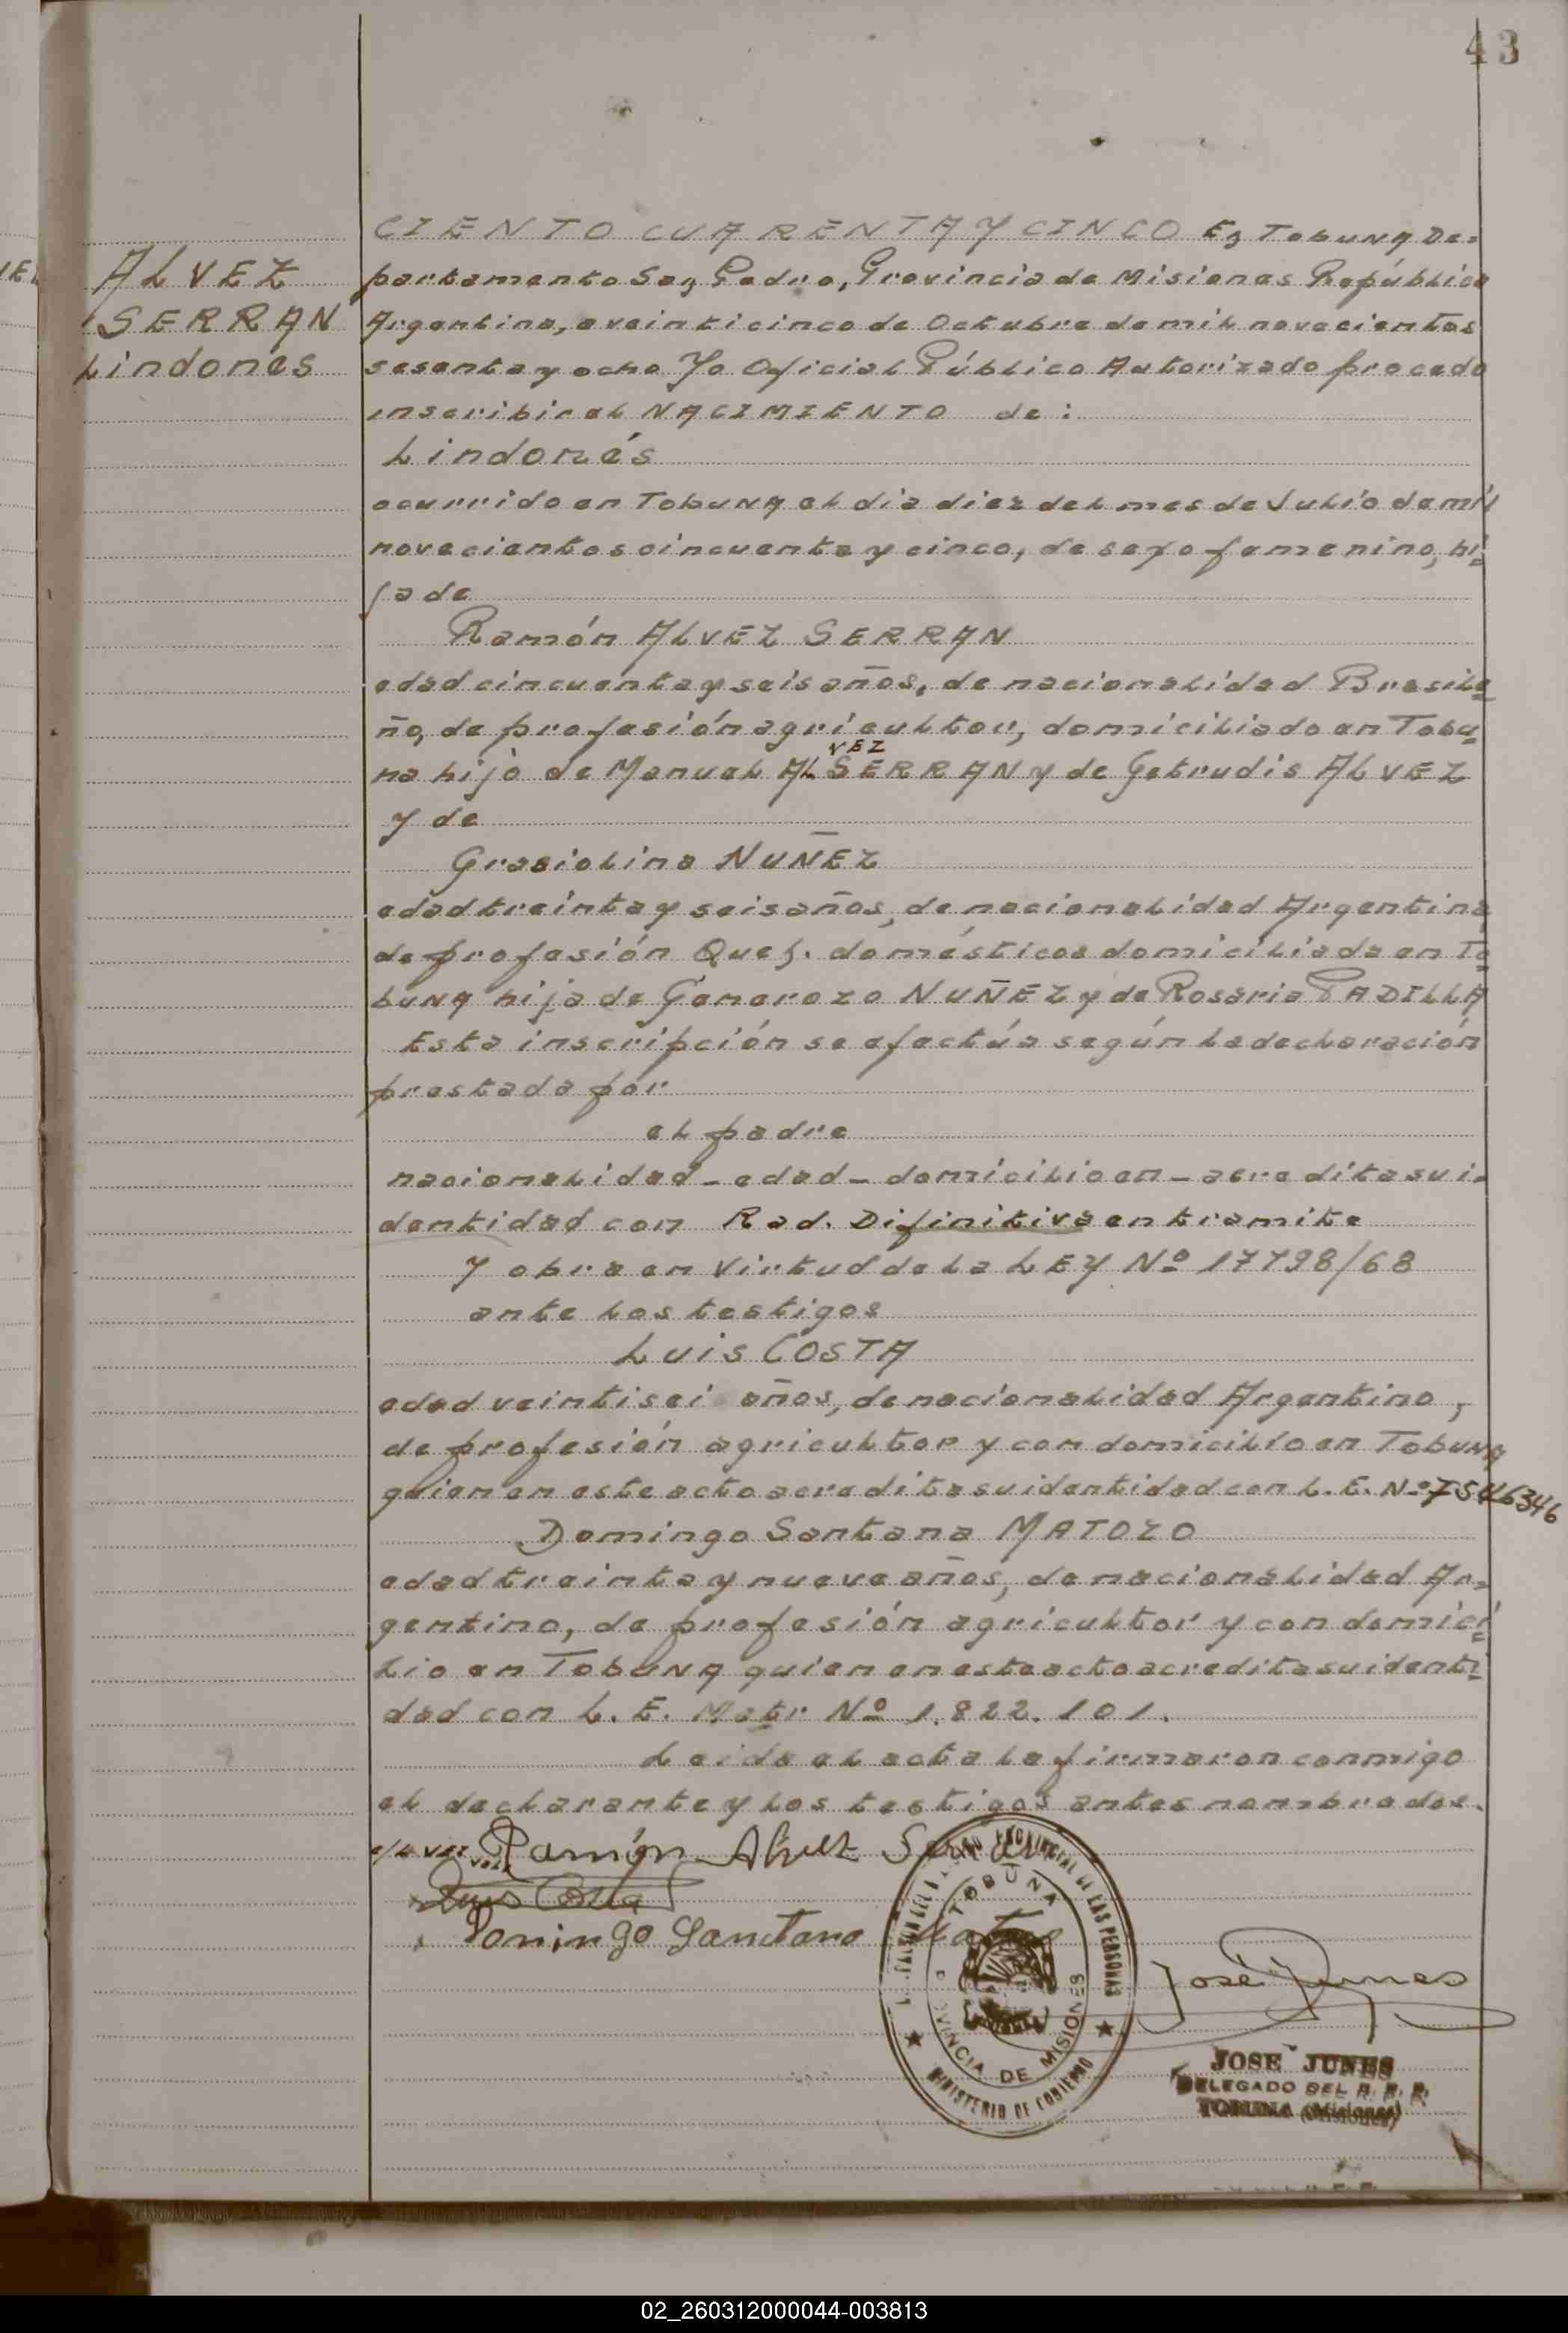 43
ALVEZ
SERRAN
Lindonés
CIENTO CUARENTA Y CINCO En Tobuna De=
partamento San Pedro, Provincia de Misiones República
Argentina, a veinticinco de Octubre de mil novecientos
sesenta y ocho Yo Oficial Público Autorizado procedo
inscribir el NACIMIENTO de:
Lindonés
ocurrido en Tobuna el dia diez del mes de Julio de mil
novecientos cincuenta y cinco, de sexo femenino, hi=
ja de
Ramón ALVEZ SERRAN
edad cincuenta y seis años, de nacionalidad Brasile=
ño, de profesión agricultor, domiciliado en Tobu=
na hijo de Manuel ALVEZ SERRAN y de Getrudis ALVEZ
y de
Grasiolina NUÑEZ
edad treinta y seis años, de nacionalidad Argentina
de profesión Queh. domésticos domiciliada en To=
buna hija de Generozo NUÑEZ y de Rosaria PADILLA
Esta inscripción se efectúa según la declaración
prestada por
el padre
nacionalidad - edad - domicilio en - acredita su i=
dentidad con Rad. Difinitiva en tramite
Y obra en virtud de la LEY Nº 17798/68
ante los testigos
Luis COSTA
edad veintisei años, de nacionalidad Argentino,
de profesión agricultor y con domicilio en Tobuna
quien en este acto acredita su identidad con L. E. Nº 7546346
Domingo Santana MATOZO
edad treinta y nueve años, de nacionalidad Ar=
gentino, de profesión agricultor y con domici=
lio en Tobuna quien en este acto acredita su identi=
dad con L. E. Matr Nº 1.822.101.
Leida el acta la firmaron conmigo
el declarante y los testigos antes nombrados.
e/L VEZ VALE Ramón Alvez Serran
Luis Costa
Domingo Santana Matozo
PROVINCIAL DE LAS PERSONAS
TOBUNA
PROVINCIA DE MISIONES
MINISTERIO DE GOBIERNO
José Junes
JOSE JUNES
DELEGADO DEL R. P. P.
TOBUNA (Misiones)
02_260312000044-003813